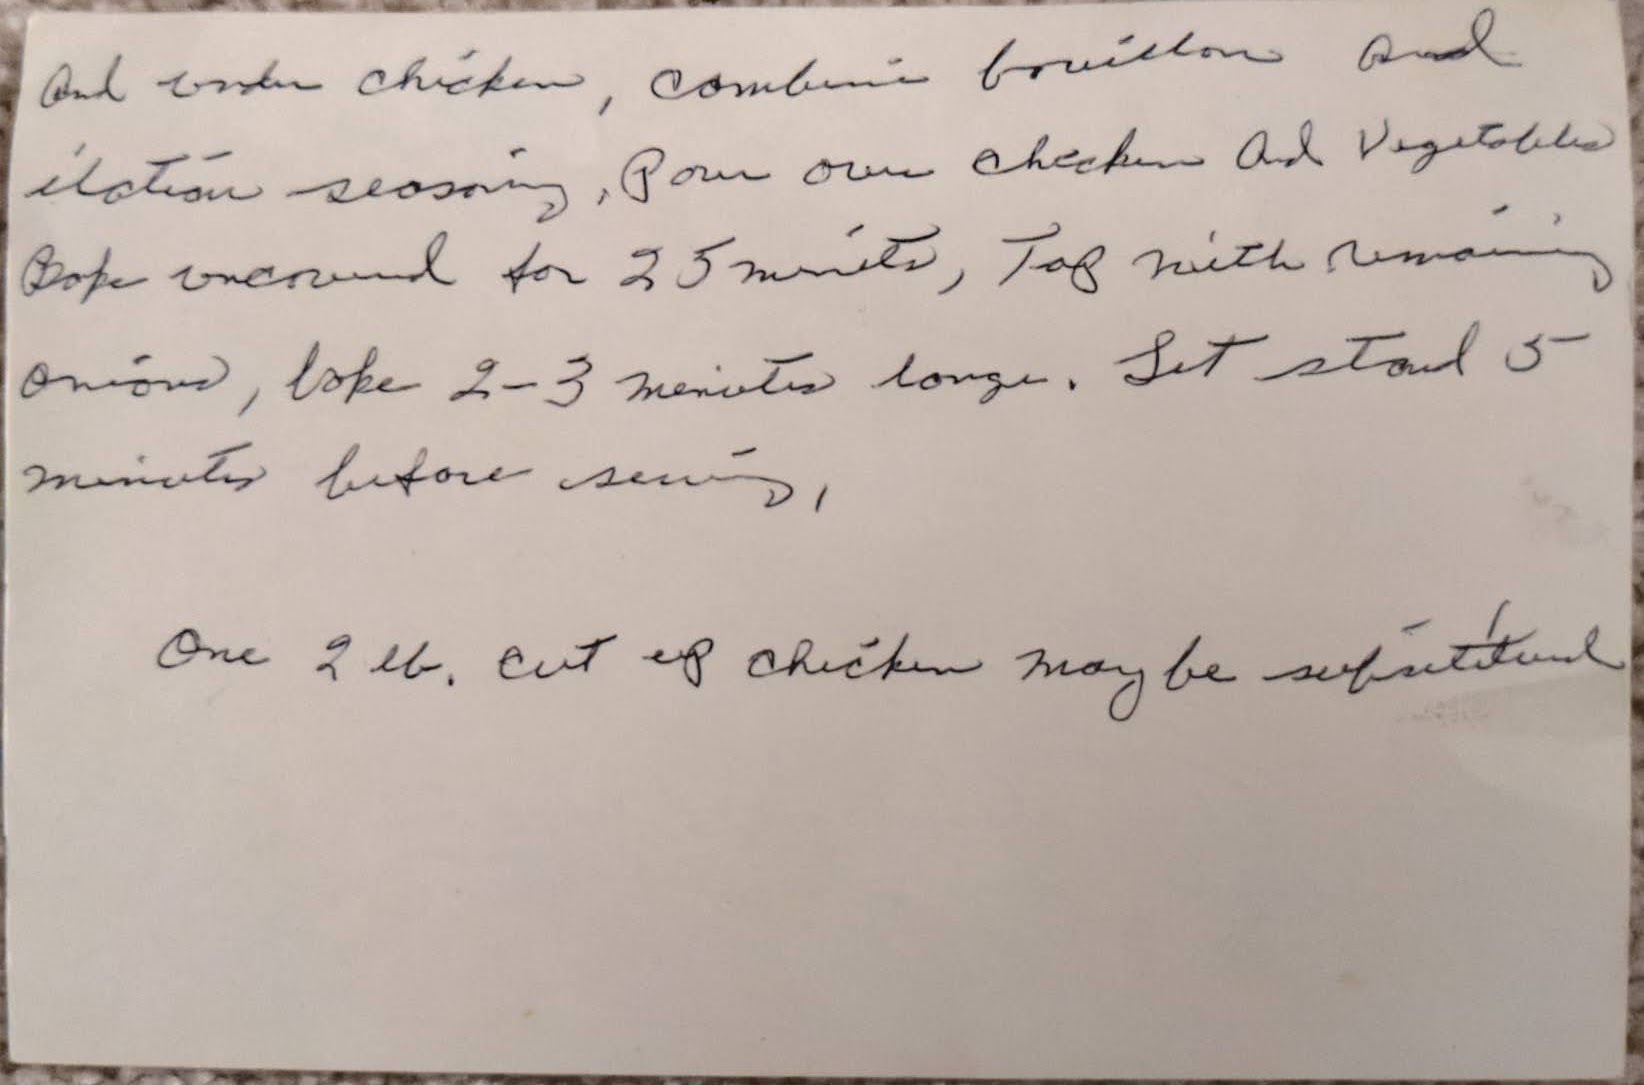 And under chicken, combine bouillon and
itatian seasoning, Pour over chicken And Vegetables
Bake uncovered for 25 minits, Top with remaining
onions, bake 2-3 minutes longer. Let stand 5
minutes before serving,
One 2 lb. cut up chicken may be supstitued